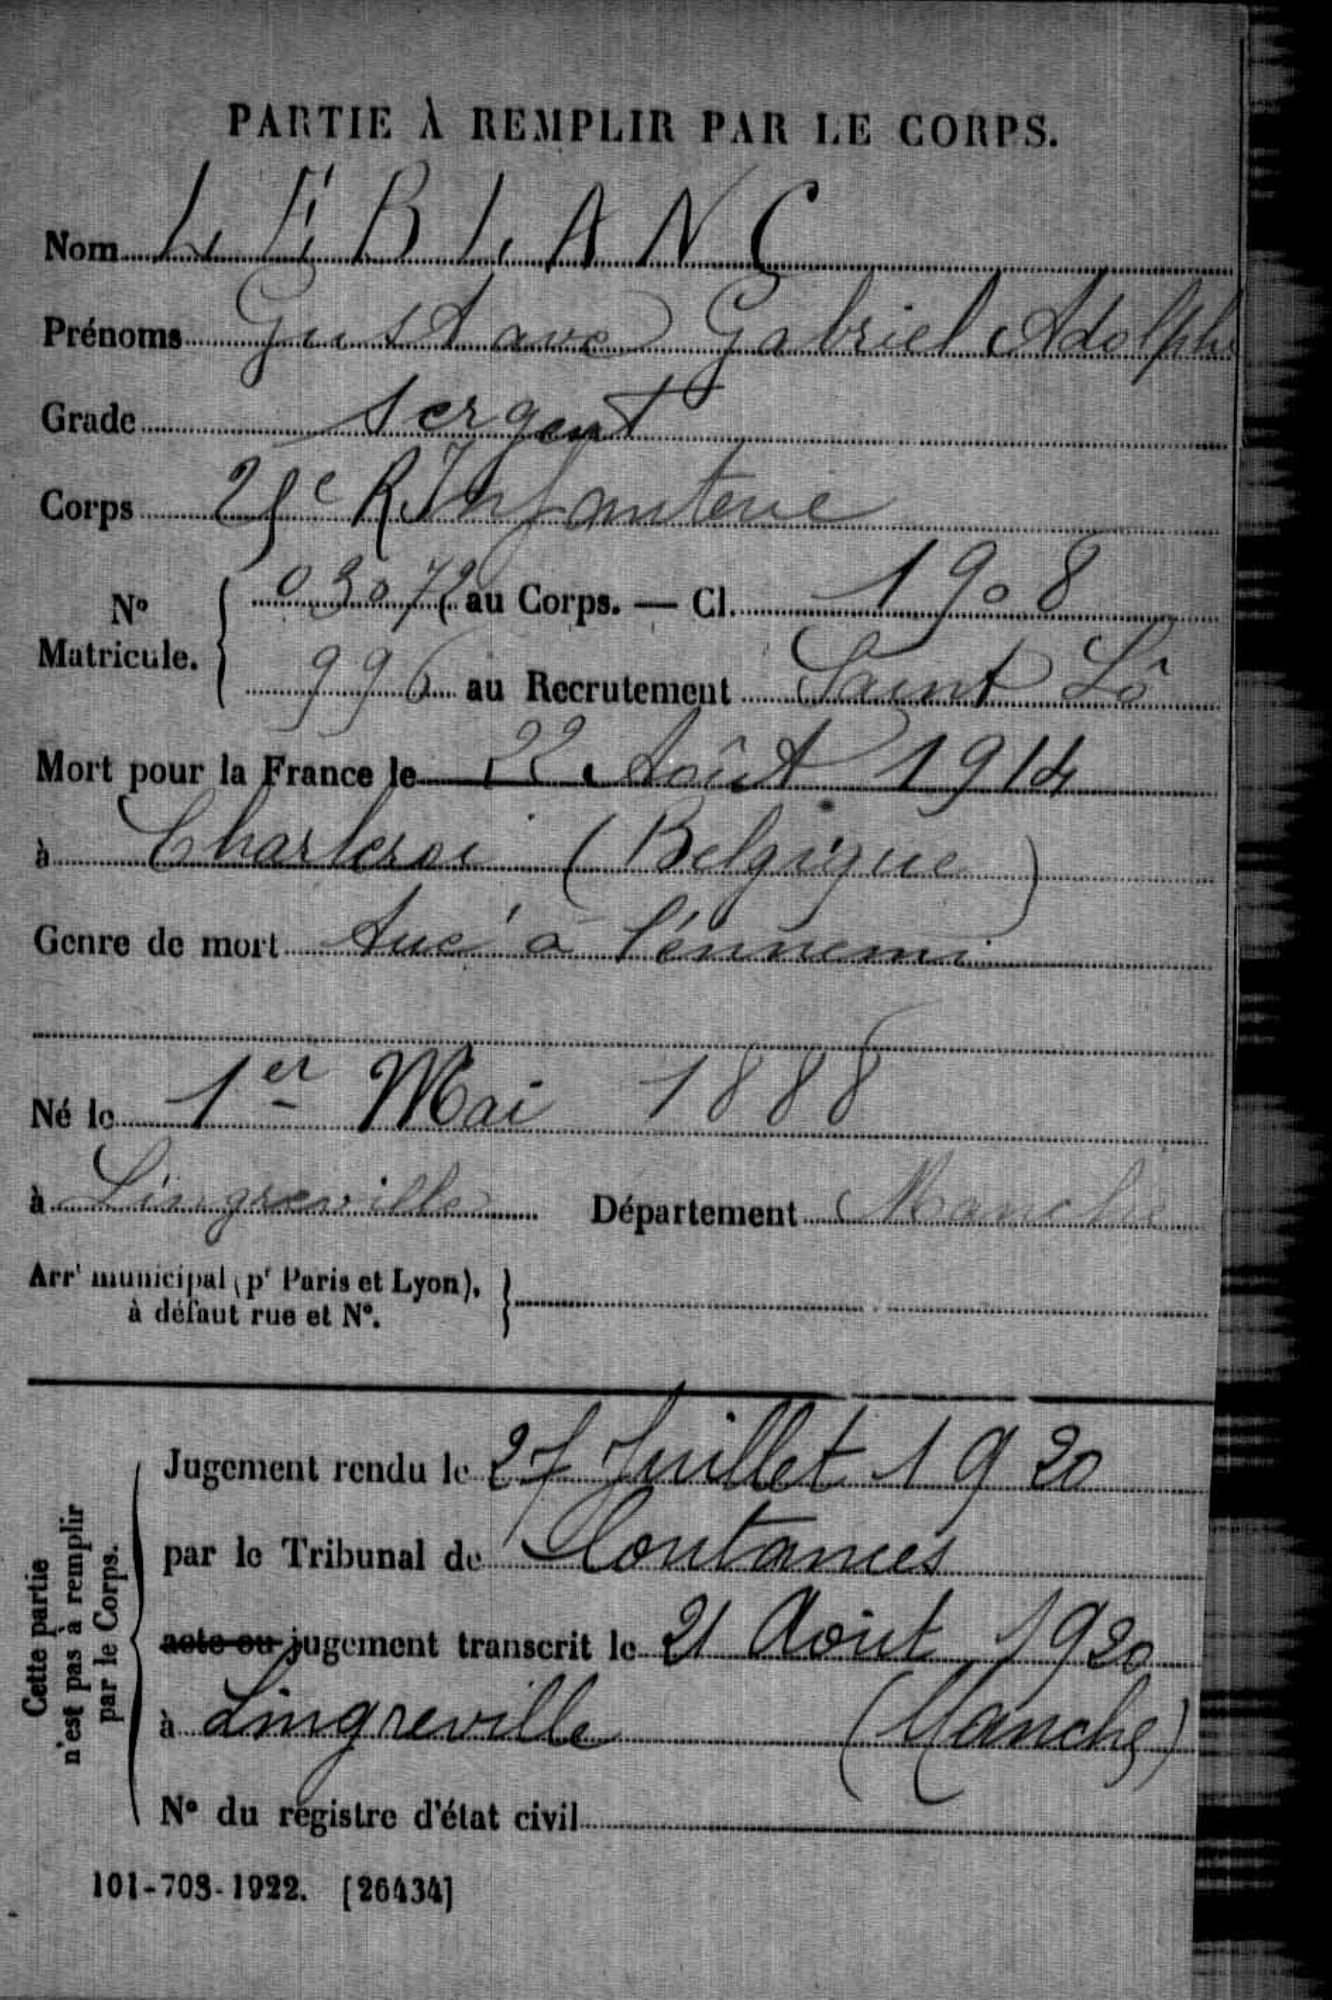 PARTIE À REMPLIR PAR LE CORPS.
Nom LEBLANC
Prénoms Gustave Gabriel Adolphe
Grade Sergent
Corps 25e R. Infanterie
N° Matricule. 03072 au Corps. — Cl. 1908
996 au Recrutement Saint Lô
Mort pour la France le 22 Août 1914
à Charleroi (Belgique)
Genre de mort tué à l'énnemi
Né le 1er Mai 1888
à Lingreville Département Manche
Arrt municipal (pr Paris et Lyon),
à défaut rue et N°.
Cette partie n'est pas à remplir par le Corps.
Jugement rendu le 27 Juillet 1920
par le Tribunal de Coutances
acte ou jugement transcrit le 21 Août 1920
à Lingreville (Manche)
N° du registre d'état civil
101-708-1922. [26434]